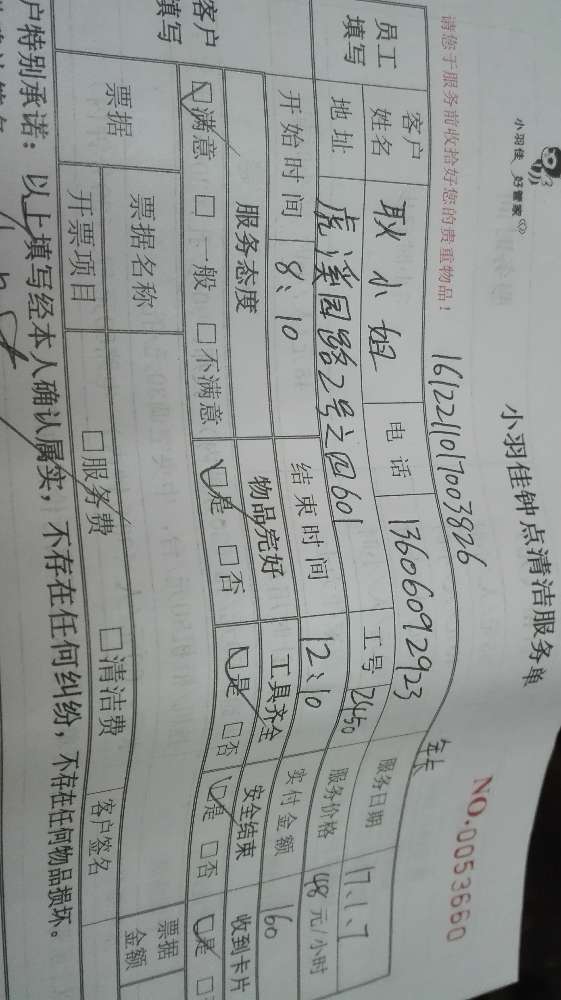 小羽佳 好管家
小羽佳钟点清洁服务单
NO.0053660
请您于服务前收拾好您的贵重物品！
1612211017003826
年卡
员工填写 客户姓名 耿小姐 电话 13606092923 工号 2450 服务日期 17.1.7
地址 虎溪园路2号之四601 服务价格 48元/小时
开始时间 8:10 结束时间 12:10 实付金额 160
客户填写 服务态度 物品完好 工具齐全 安全结束 收到卡片
☑满意 □一般 □不满意 ☑是 □否 ☑是 □否 ☑是 □否 ☑是 □
票据 票据名称 票据金额
开票项目 □服务费 □清洁费 客户签名
户特别承诺：以上填写经本人确认属实，不存在任何纠纷，不存在任何物品损坏。